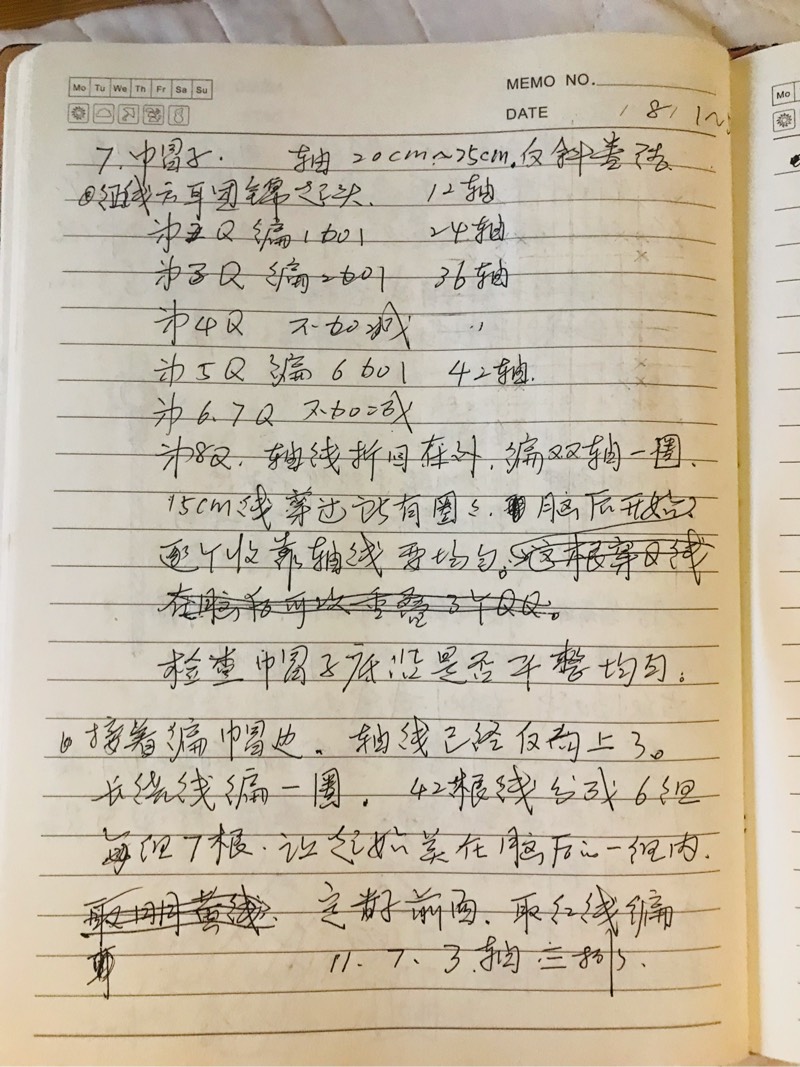 Mo Tu We Th Fr Sa Su
MEMO NO.
DATE 8
7. 巾冒子. 轴 20cm~25cm.仅斜卷结
12轴
编1加1 24轴
第3Q 编2加1 36轴
第4Q 不加减 〃
第5Q 编6加1 42轴.
第6.7Q 不加减
第8Q. 轴线折回在外.编双轴一圈.
15cm线穿过所有圈圈. 脑后开始
逐个收靠轴线要均匀。这根穿Q线
在脑后可以重叠3个QQ。
检查巾冒子底沿是否平整均匀。
b 接着编帽边。轴线已经仅向上了。
长绕线编一圈. 42根线分成6组
每组7根.让起始美在脑后一组内.
取 黄线. 定好前面.取红线编
11. 7. 3.轴 三排.
Mo